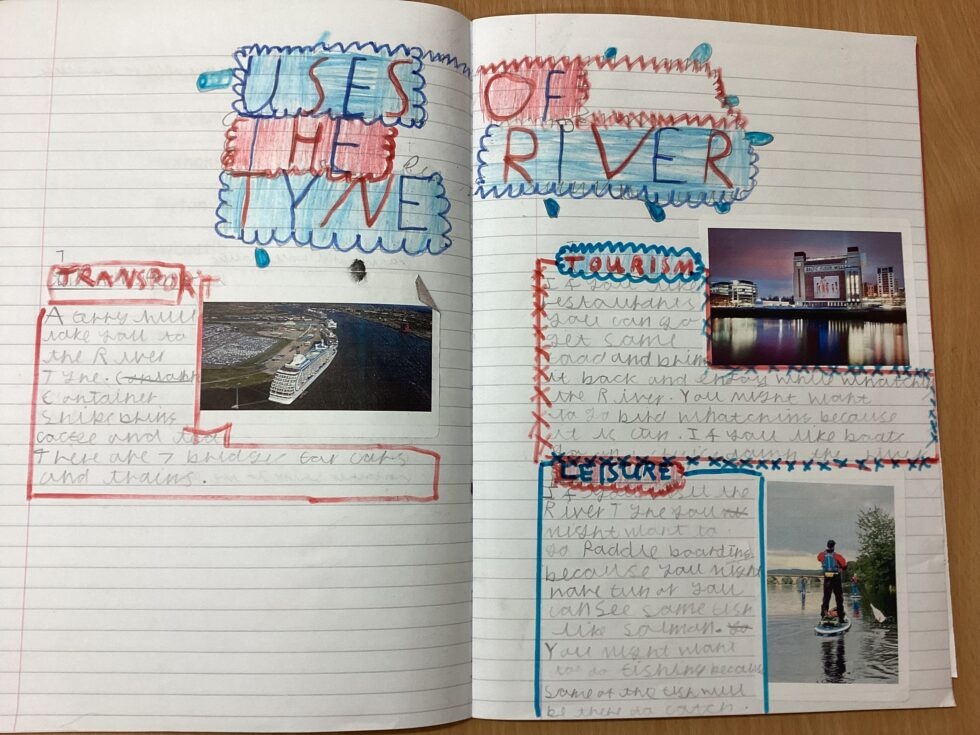 USES OF
THE RIVER
TYNE
TRANSPORT
A will
take you to
the River
Tyne.
Container
Ships bring
and
There are 7 bridges for cars
and trains.
TOURISM
If you like
restaurants
you can go
get some
food and
it back and enjoy while
the River. You might want
to go bird whatching because
it is fun. If you like boats
LEISURE
If you the
River Tyne you
might want to
go Paddle boarding
because you might
have fun or you
can see some fish
like salman.
You might want
to go fishing because
some of the fish will
be there to catch.